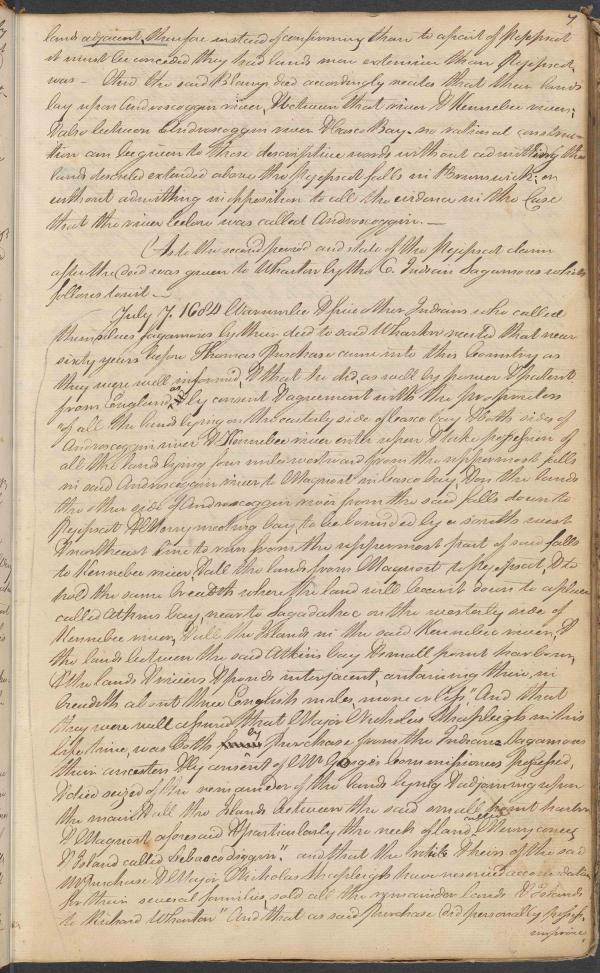 7
lands adjacent, therefore instead of confirming them to a part of Pejepscot
it must be conceded they had lands more extensive than Pejepscot
was — And the said Blany did accordingly recite that their lands
lay upon Androscoggin river, & between that river & Kennebec river;
& also between Androscoggin river & Casco Bay. no rational construc-
tion can be given to these descriptive words without admitting the
lands described extended above the Pejepscot falls in Brunswick; or
without admitting in opposition to all the evidence in the Case
that the river below was called Androscoggin. —
As to the second period and state of the Pejepscot claim
after the deed was given to Wharton by the 6. Indian Sagamores which
follows to wit —
July 7. 1684 Warumbee & five other Indians who called
themselves sagamores by their deed to said Wharton recited that near
sixty years before Thomas Purchase came into this Country as
they were well informed, & that he did, as well by power & patent
from England, as by consent & agreement with the proprietors
of all the lands lying on the easterly side of casco bay & both sides of
Androscoggin river & Kennebec river enter upon & take possession of
all the land lying four miles westward from the uppermost falls
in said Androscoggin river to Maquoit in casco bay, & on the lands
the other side of Androscoggin river from the said falls down to
Pejepscot & Merrymeeting bay, to be bounded by a south west
& northeast line to run from the uppermost part of said falls
to Kennebec river, & all the lands from Maquoit to Pejepscot, & to
hold the same breadth where the land will bear it down to a place
called Atkins bay, near to Sagadahoc on the westerly side of
Kennebec river, & all the Islands in the said Kennebec river, &
the lands between the said Atkins bay & small point harbour,
& the lands & rivers & ponds interjacent, containing their in
breadth about three English miles, more or less". And that
they were well assured that Major Nicholas Shapleigh in his
life time, was both by purchase from the Indian Sagamores
their ancestors & by consent of Mr Gorges Commissioners possessed,
& died seized of the remainder of the lands lying & adjoining upon
the main & all the Islands between the said small point harbor
& Maquoit aforesaid & particularly the neck of land called Merryconeeg
& Island called Sebascodiggin". and that the relicts & heirs of the said
Mr Purchase & Major Nicholas Shapleigh have reserved accomodation
for their several families, sold all the remainder lands & Islands
to Richard Wharton" And that as said Purchase did personally possess,
improve